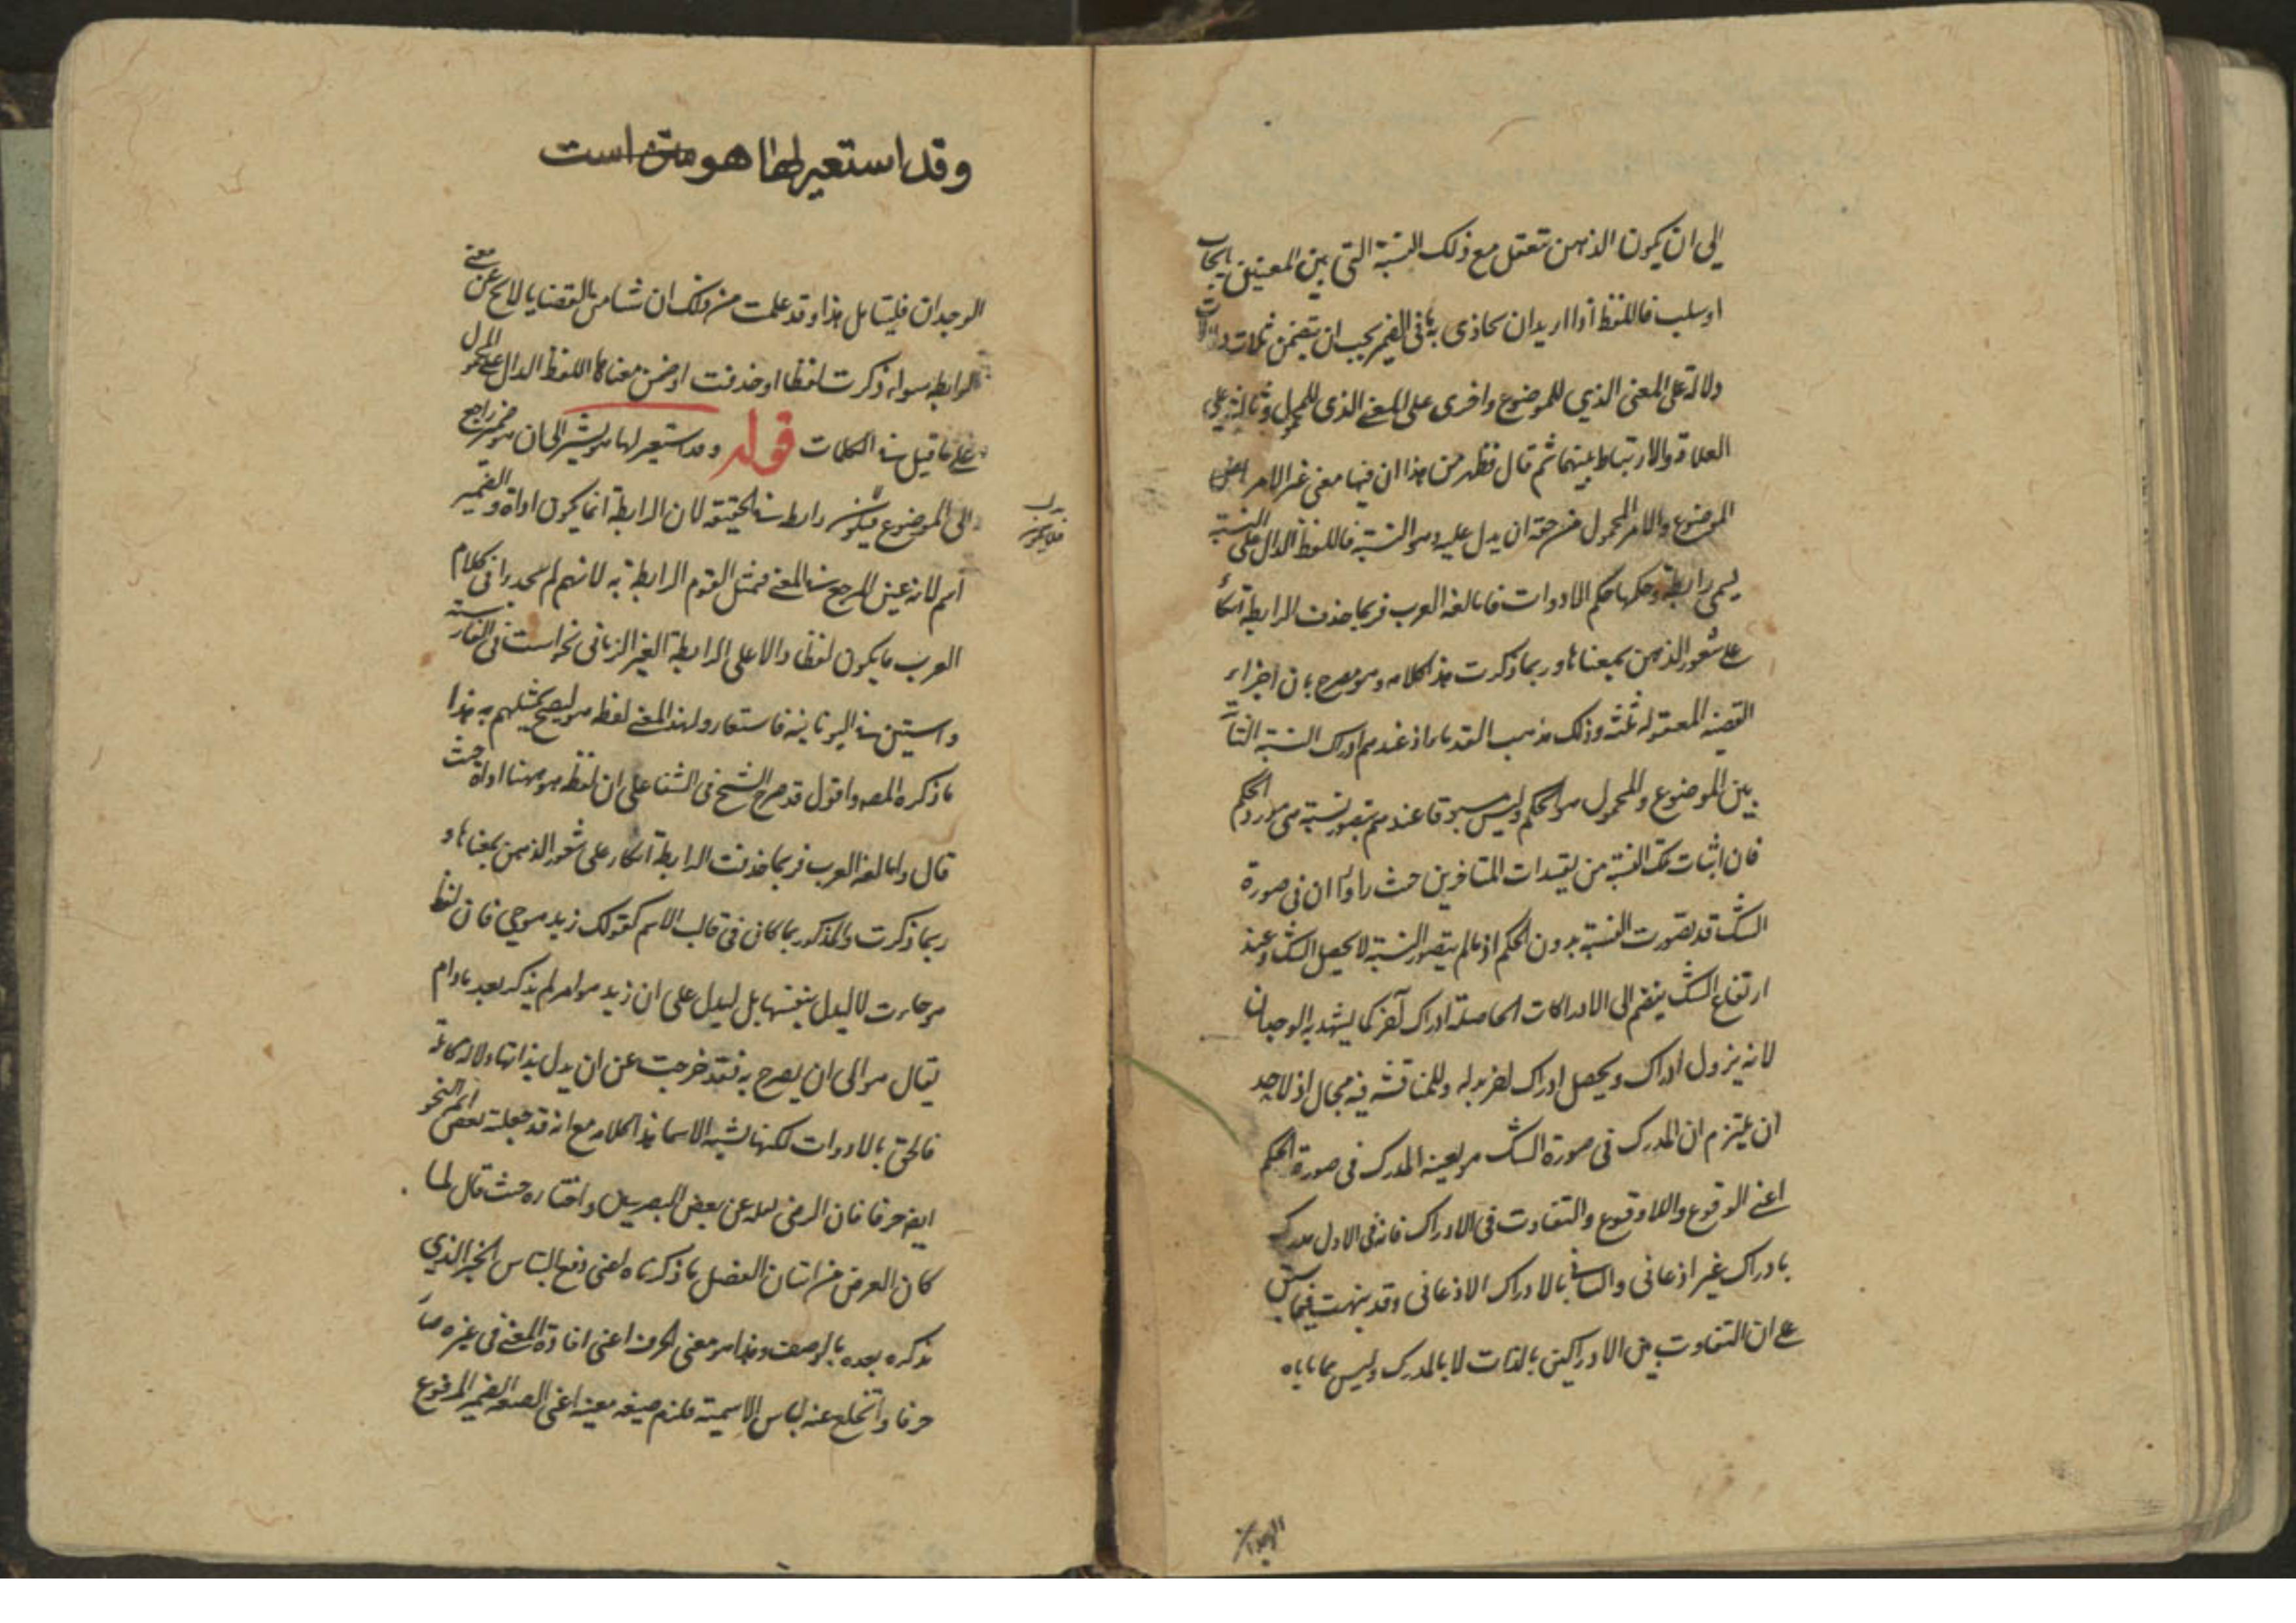 الى ان يكون الذهن تعقل مع ذلك النسبة التى بين المعنيين بايجاب
او سلب فاللفظ اذا اريد ان يحاذى به ما فى الضمير يجب ان يتضمن ثلاث دلالات
دلالة على المعنى الذي للموضوع واخرى على المعنى الذى للمحمول وثالثة على
العلاقة والارتباط بينهما ثم قال فظهر من هذا ان فيها معنى غير الامر اعنى
الموضوع والامر المحمول من حقه ان يدل عليه وهو النسبة فاللفظ الدال على النسبة
يسمى رابطة وحكمها حكم الادوات فاما لغة العرب فربما حذفت الرابطة اتكالا
على شعور الذهن بمعناها وربما ذكرت هذا كلامه وهو مصرح بان اجزاء
القضية المعقولة ثلثة وذلك مذهب القدماء اذ عندهم ادراك النسبة
بين الموضوع والمحمول هو الحكم وليس مسبوقا عندهم بتصور نسبة هى مورد الحكم
فان اثبات تلك النسبة من المتأخرين حيث راوا ان فى صورة
الشك قد تصورت النسبة بدون الحكم اذ ما لم يتصور النسبة لا يحصل الشك وعند
ارتفاع الشك ينضم الى الادراكات الحاصلة ادراك آخر كما يشهد به الوجدان
لانه يزول ادراك ويحصل ادراك اخر بدله وللمناقشة فيه مجال اذ لاحد
ان يلتزم ان المدرك فى صورة الشك هو بعينه المدرك فى صورة الحكم
اعنى الوقوع واللاوقوع والتفاوت فى الادراك فانه فى الاول مدرك
بادراك غير اذعانى والثانى بالادراك الاذعانى وقد نبهت فيما سبق
على ان التفاوت بين الادراكين بالذات لا بالمدرك وليس مما ياباه
الوجدان
وقد استعير لها هو است
الوجدان فليتأمل هذا وقد علمت من ذلك ان شيئا من القضايا لا يخ عن معنى
الرابطة سواء ذكرت لفظا او حذفت او ضمن معناها اللفظ الدال على المحمول
على ما قيل فى الكلمات قوله وقد استعير لها هو يشير الى ان هو ضمير راجع
الى الموضوع فيكون رابطة فى الحقيقة لان الرابطة انما يكون اداة والضمير
بدل فلا يكون
اسم لانه عين المرجع فى المعنى فمثل القوم الرابطة به لانهم لم يجدوا فى كلام
العرب ما يكون لفظا دالا على الرابطة الغير الزمانى نحو است فى الفارسية
واستين فى اليونانية فاستعاروا لهذا المعنى لفظ هو ليصح تمثيلهم به هذا
ما ذكره المص واقول قد صرح الشيخ فى الشفا على ان لفظ هو ههنا اداة حيث
قال واما لغة العرب فربما حذفت الرابطة اتكالا على شعور الذهن بمعناها و
ربما ذكرت والمذكور ربما كان فى قالب الاسم كقولك زيد هو حى فان لفظ
هو جاءت لا ليدل بنفسها بل ليدل على ان زيد هو امر لم يذكر بعد ما دام
يقال هو الى ان يصرح به فقد خرجت عن ان يدل بذاتها دلالة كاملة
فالحق بالادوات لكنها يشبه الاسماء هذا كلامه مع انه قد جعله بعض ائمة النحو
ايض حرفا فان الرضى نقله عن بعض البصريين واختاره حيث قال لما
كان الغرض من اتيان الفصل ما ذكرناه اعنى دفع التباس الخبر الذي
يذكره بعده بالوصف وهذا هو معنى الحرف اعنى افادة المعنى فى غيره صار
حرفا وانخلع عنه لباس الاسمية فلزم صيغة معينة اعنى الضمير المرفوع